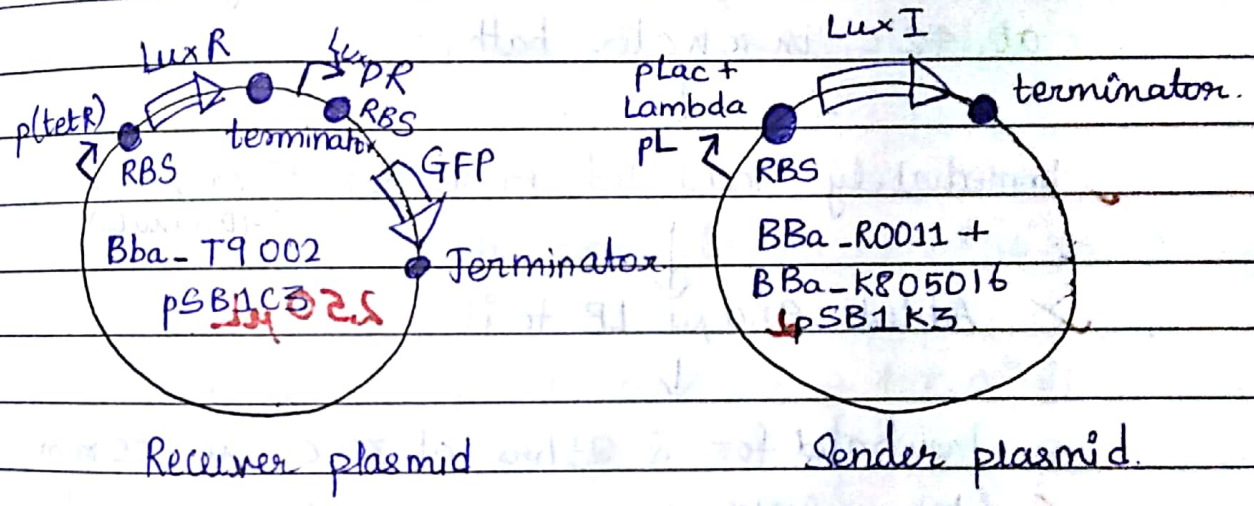 LuxR
Lux PR
p(tetR)
RBS
terminator
RBS
GFP
Bba_T9002
pSB1C3
Terminator
Receiver plasmid
LuxI
pLac +
Lambda
pL
RBS
terminator.
BBa_R0011 +
BBa_K805016
pSB1K3
Sender plasmid.